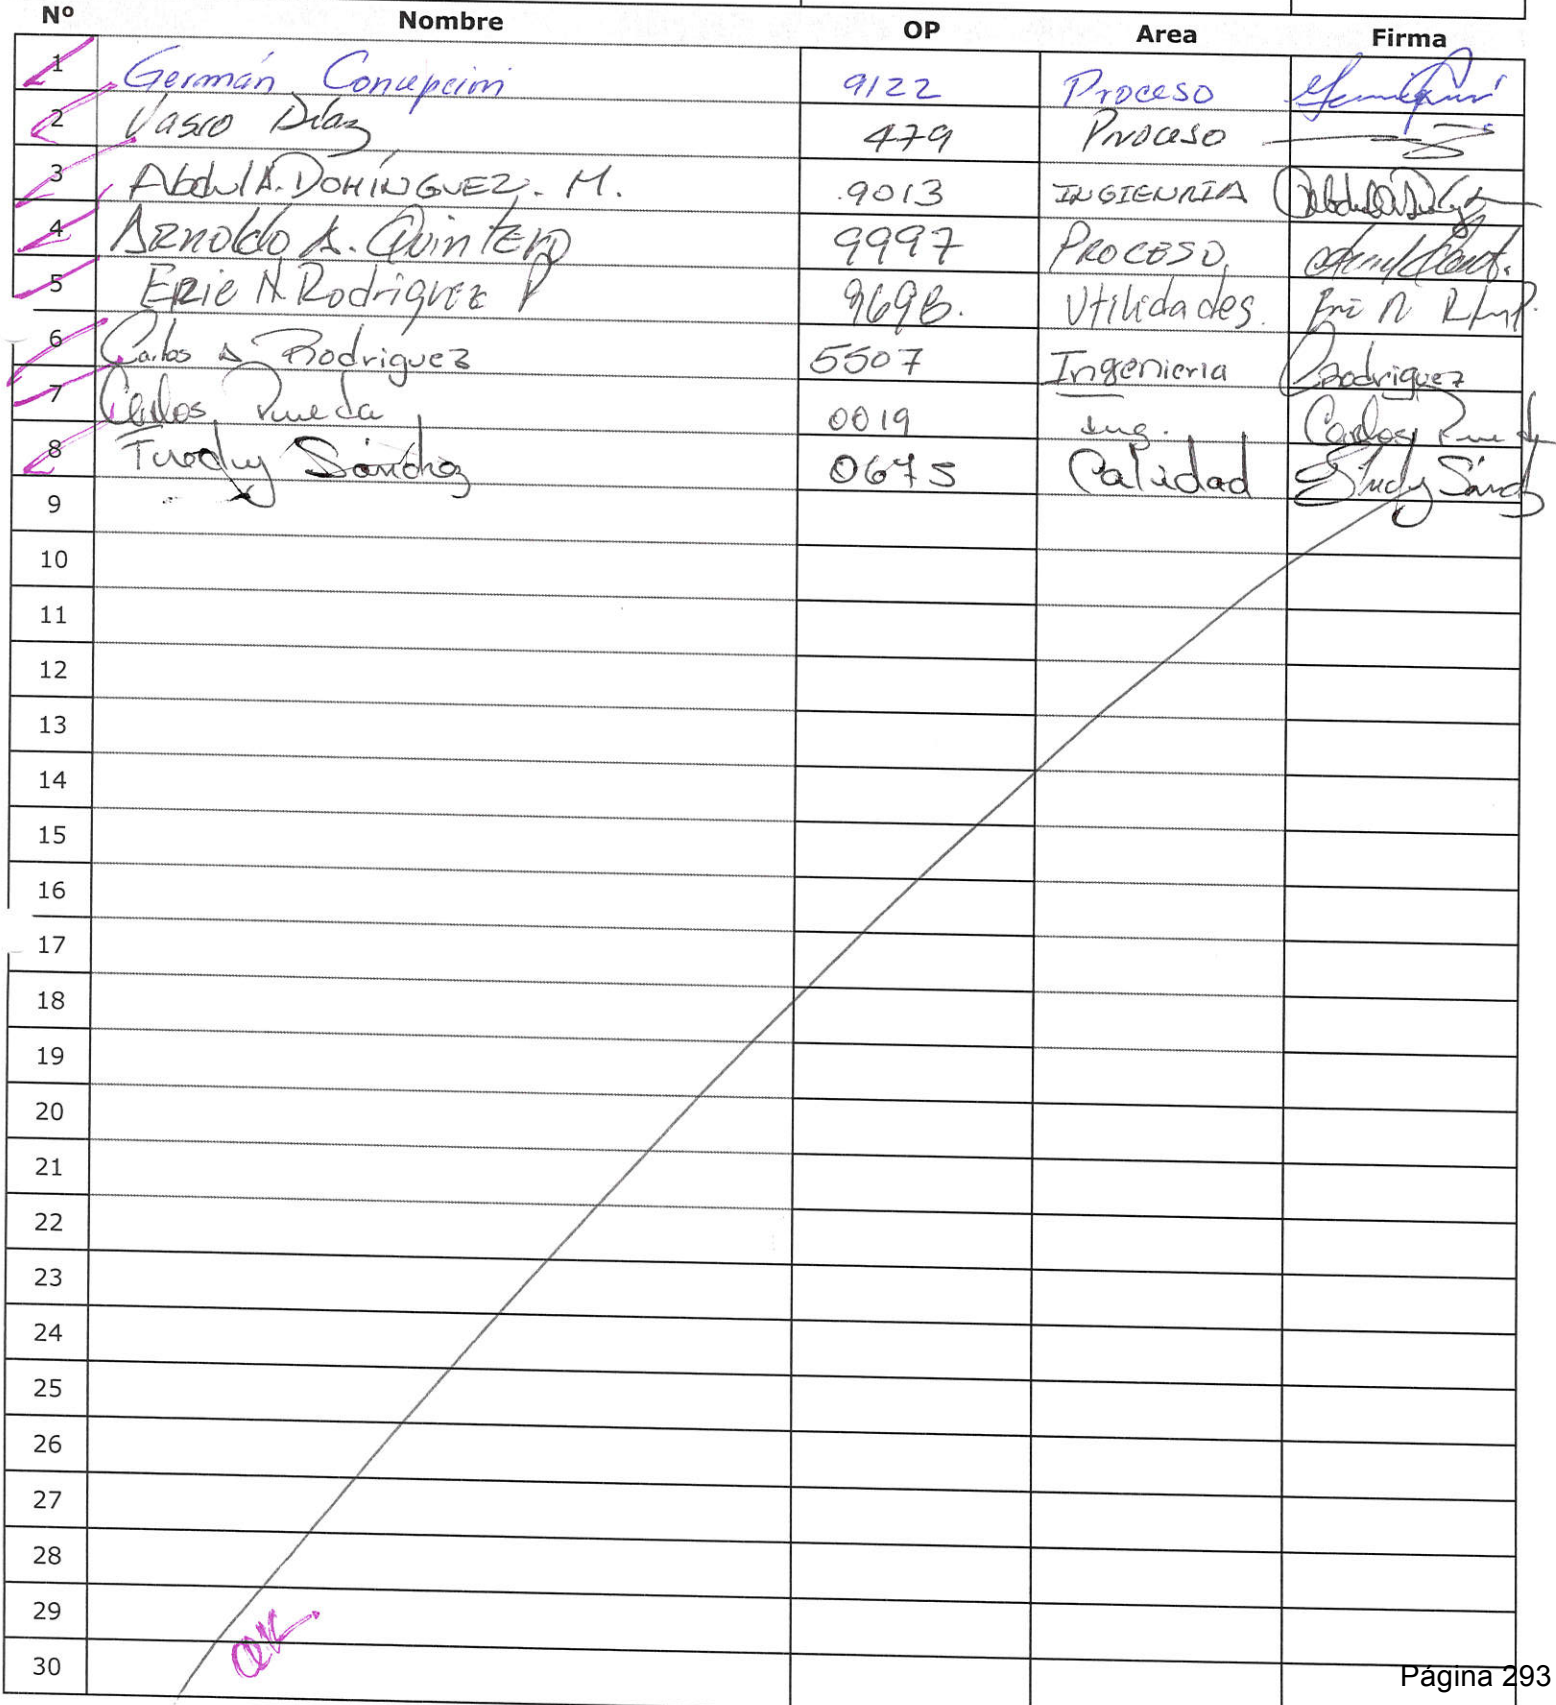 Nº Nombre OP Area Firma
1 Germán Concepción 9122 Proceso
2 Vasco Díaz 479 Proceso
3 Abdul A. DOMÍNGUEZ. M. 9013 INGIENRIA
4 Arnoldo A. Quintero 9997 PROCESO
5 Eric N. Rodríguez P 9698. Utilidades.
6 Carlos A Rodriguez 5507 Ingenieria Rodriguez
7 Carlos Pineda 0019 Ing. Carlos
8 Sánchez 0675 Calidad
9
10
11
12
13
14
15
16
17
18
19
20
21
22
23
24
25
26
27
28
29
30
Página 293